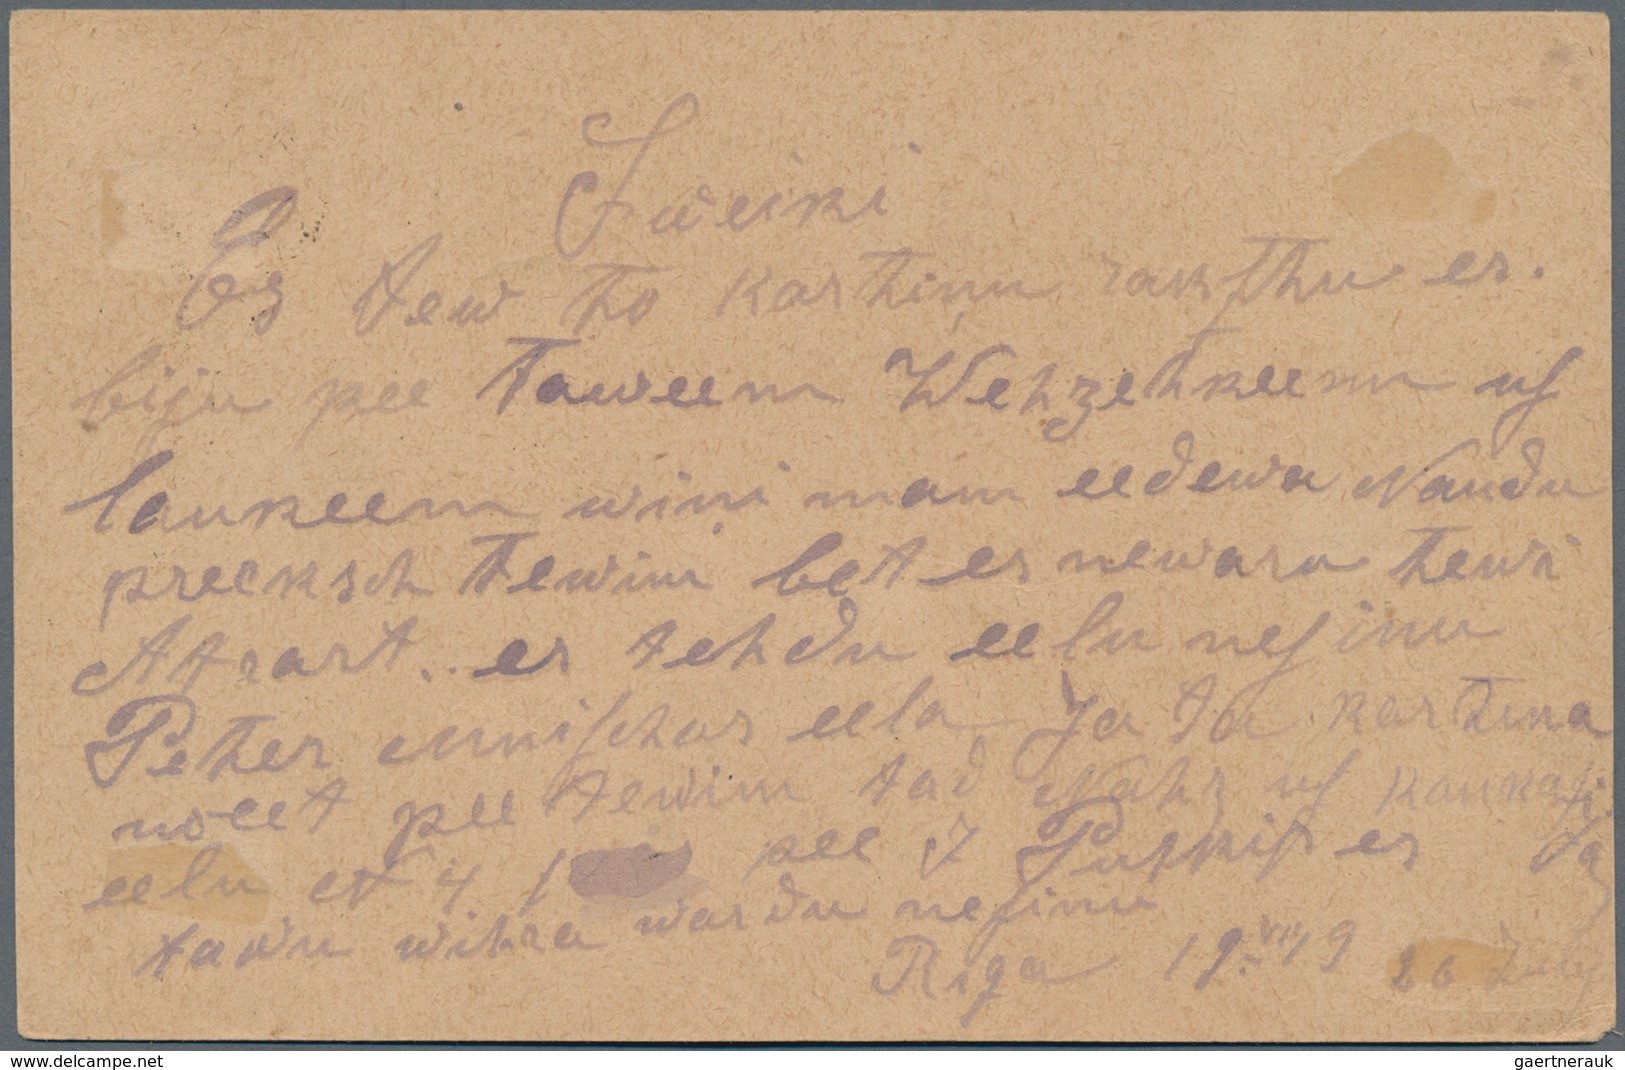 Sweiki
Es tew to kartinu rakstu es.
biju pee taweem Wehzehkeem us
laukeem wini mam eedewa Naudu
preeksch tewim bet es newaru tewi
Attrast.. es tehdu eelu nesinu
Peter eela Ja ta kartina
noeet pee tewim tad Nahz us
eelu et 4 pee J es Ja
tawu wihra wardu nesinu
Riga 19VII19 26 July
www.delcampe.net
gaertnerauk